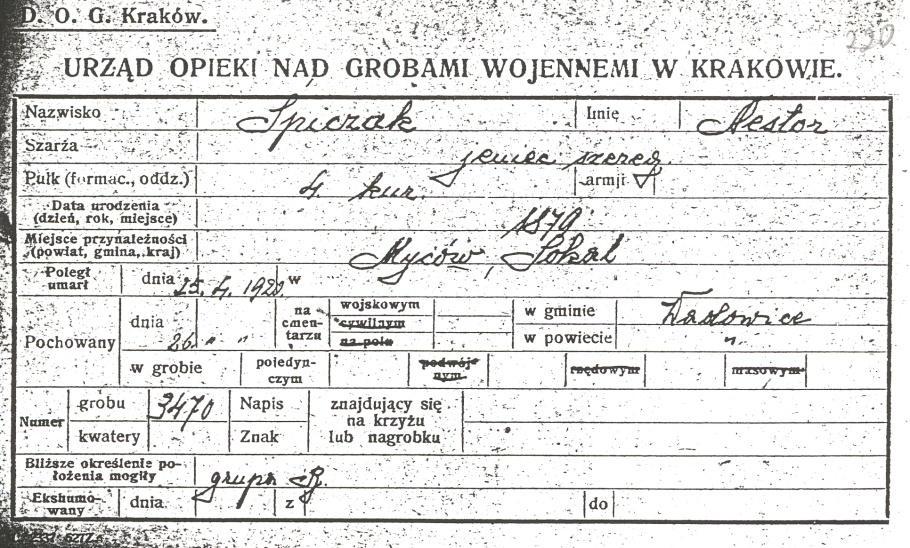 D. O. G. Kraków.
230
URZĄD OPIEKI NAD GROBAMI WOJENNEMI W KRAKOWIE.
Nazwisko Spiczak Imię Nestor
Szarża jeniec szereg.
Pułk (formac., oddz.) 4 kur. armji
Data urodzenia (dzień, rok, miejsce) 1879
Miejsce przynależności (powiat, gmina, kraj) Myców, Sokal
Poległ umarł dnia 25. 4. 1920. w
Pochowany dnia 26. " " na cmentarzu wojskowym cywilnym na polu w gminie Wadowice
w powiecie "
w grobie poiedyńczym podwójnym rzędowym masowym
Numer grobu 3470 Napis znajdujący się na krzyżu lub nagrobku
kwatery Znak
Bliższe określenie położenia mogiły grupa
Ekshumowany dnia z do